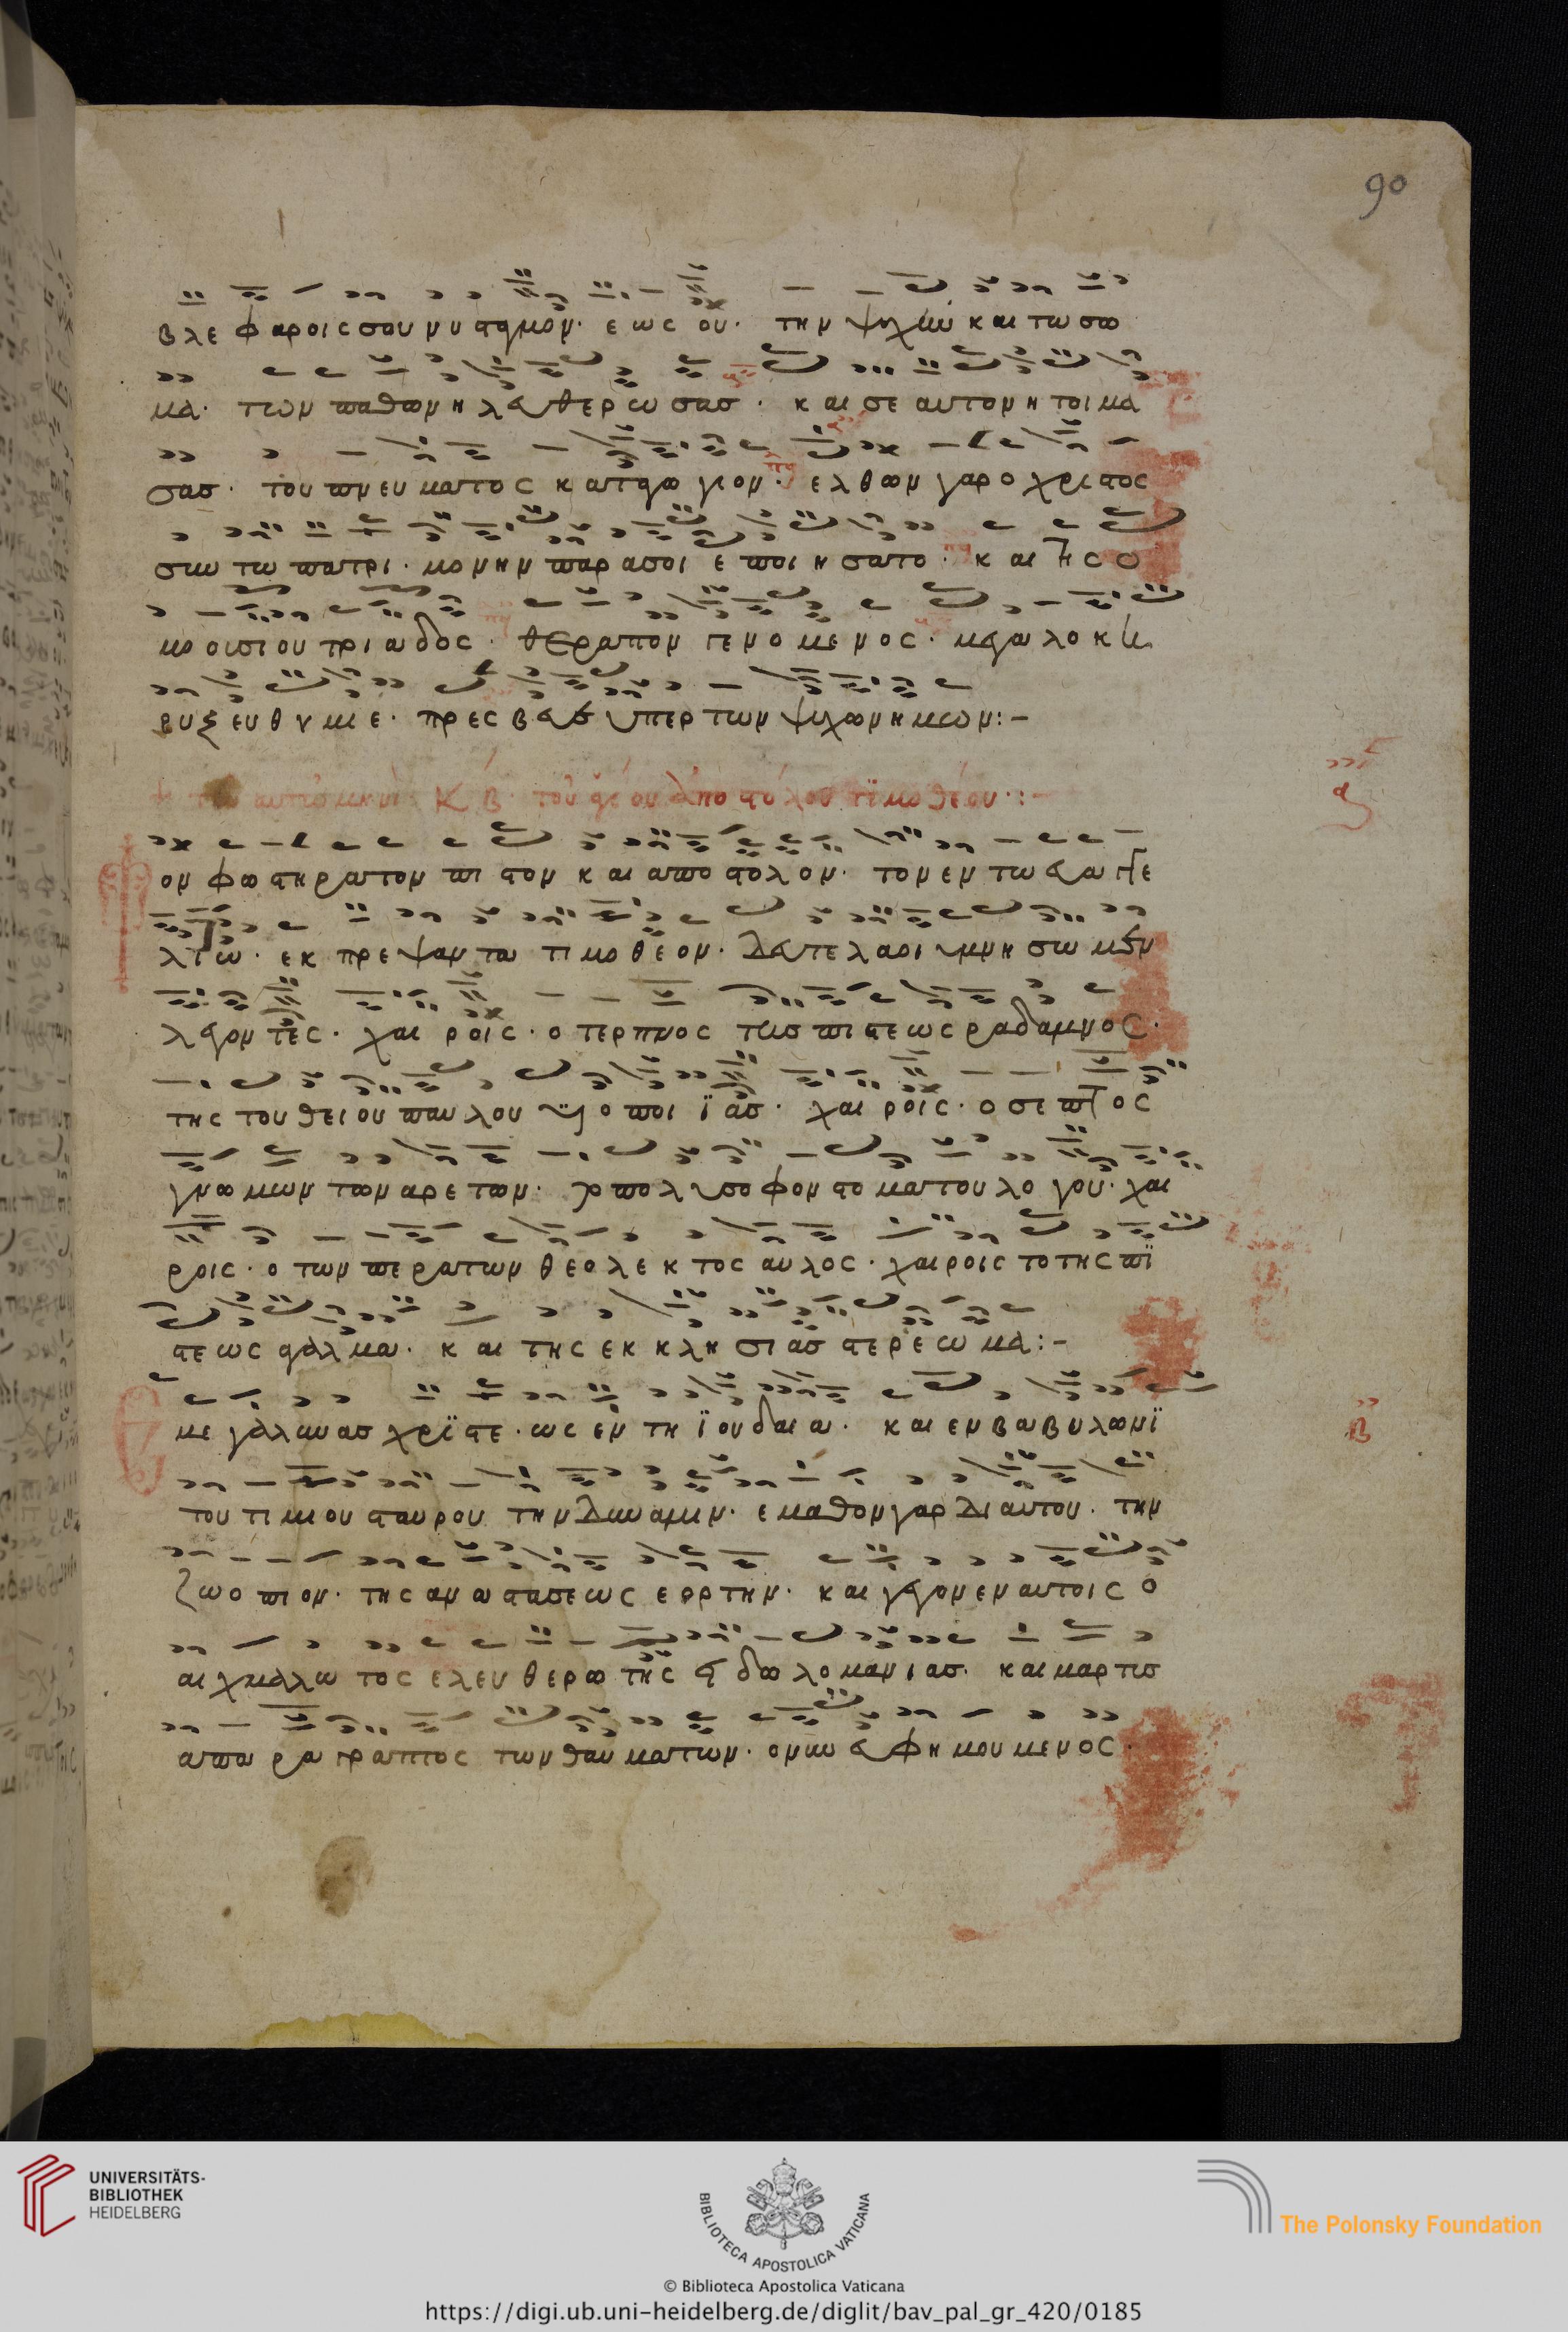 90
βλεφαροις σου νυσταγμον· εως ου· την ψυχην και το σω
μα· των παθων ηλευθερωσας· και σεαυτον ητοιμα
σας· του πνευματος καταγωγιον· ελθων γαρ ο χριστος
συν τω πατρι· μονην παρα σοι εποιησατο· και της ο
μοουσιου τριαδος· θεραπον γενομενος· μεγαλοκη
ρυξ ευθυμιε· πρεσβευε υπερ των ψυχων ημων:-
τω αυτω μηνι ΚΒ· του αγιου αποστολου τιμοθεου·:-
α
ον φωστηρα τον πιστον και αποστολον· τον εν τω ευαγγε
λιω· εκπρεψαντα τιμοθεον· δευτε λαοι υμνησωμεν
λεγοντες· χαιροις· ο τερπνος της πιστεως ραδαμνος·
της του θειου παυλου υιοποιιας· χαιροις· ο σεπτος
γνωμων των αρετων· το πολυσοφον στομα του λογου· χαι
ροις· ο των περατων θεολεκτος αυλος· χαιροις το της πι
στεως σταλμα· και της εκκλησιας στερεωμα:-
β
Εμεγαλυνας χριστε· ως εν τη ιουδαια· και εν βαβυλωνι
του τιμιου σταυρου την δυναμιν· εμαθον γαρ δι αυτου· την
ζωοποιον· της αναστασεως εορτην· και γεγονεν αυτοις ο
αιχμαλωτος ελευθερωτης ειδωλομανιας· και μαρτυς
απαραγραπτος των θαυματων· ον νυν ευφημουμενος·
UNIVERSITÄTS-
BIBLIOTHEK
HEIDELBERG
BIBLIOTECA APOSTOLICA VATICANA
The Polonsky Foundation
© Biblioteca Apostolica Vaticana
https://digi.ub.uni-heidelberg.de/diglit/bav_pal_gr_420/0185